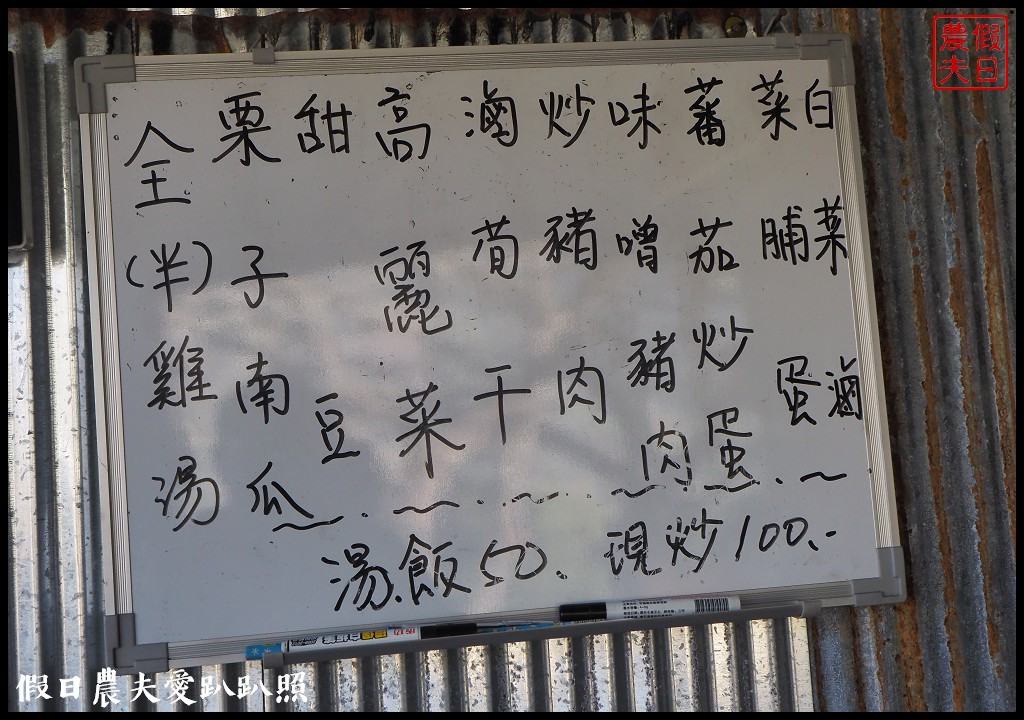 假日
農夫
白菜滷
菜脯蛋
蕃茄炒蛋
味噌豬肉
炒豬肉
滷荀干
高麗菜
甜豆
栗子南瓜
全(半)雞湯
湯.飯50. 現炒100.-
假日農夫愛趴趴照